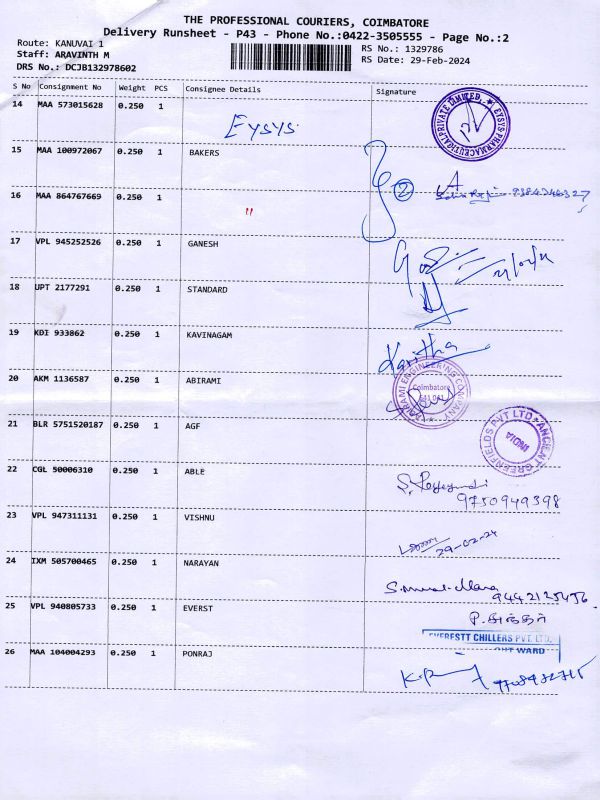 THE PROFESSIONAL COURIERS, COIMBATORE
Delivery Runsheet - P43 - Phone No.:0422-3505555 - Page No.:2
Route: KANUVAI 1
Staff: ARAVINTH M
DRS No.: DCJB132978602
RS No.: 1329786
RS Date: 29-Feb-2024
S No Consignment No Weight PCS Consignee Details Signature
14 MAA 573015628 0.250 1 EYSYS
EYSYS PHARMACEUTICAL PRIVATE LIMITED
15 MAA 100972067 0.250 1 BAKERS
16 MAA 864767669 0.250 1 "
2
17 VPL 945252526 0.250 1 GANESH
18 UPT 2177291 0.250 1 STANDARD
19 KDI 933862 0.250 1 KAVINAGAM
Kavitha
20 AKM 1136587 0.250 1 ABIRAMI
ABIRAMI ENGINEERING COMPANY
Coimbatore
641 041
21 BLR 5751520187 0.250 1 AGF
ANCIENT GREENFIELDS PVT LTD
INDIA
22 CGL 50006310 0.250 1 ABLE
9750949398
23 VPL 947311131 0.250 1 VISHNU
29-02-24
24 IXM 505700465 0.250 1 NARAYAN
9442125456
25 VPL 940805733 0.250 1 EVERST
EVERESTT CHILLERS PVT. LTD.
WARD
26 MAA 104004293 0.250 1 PONRAJ